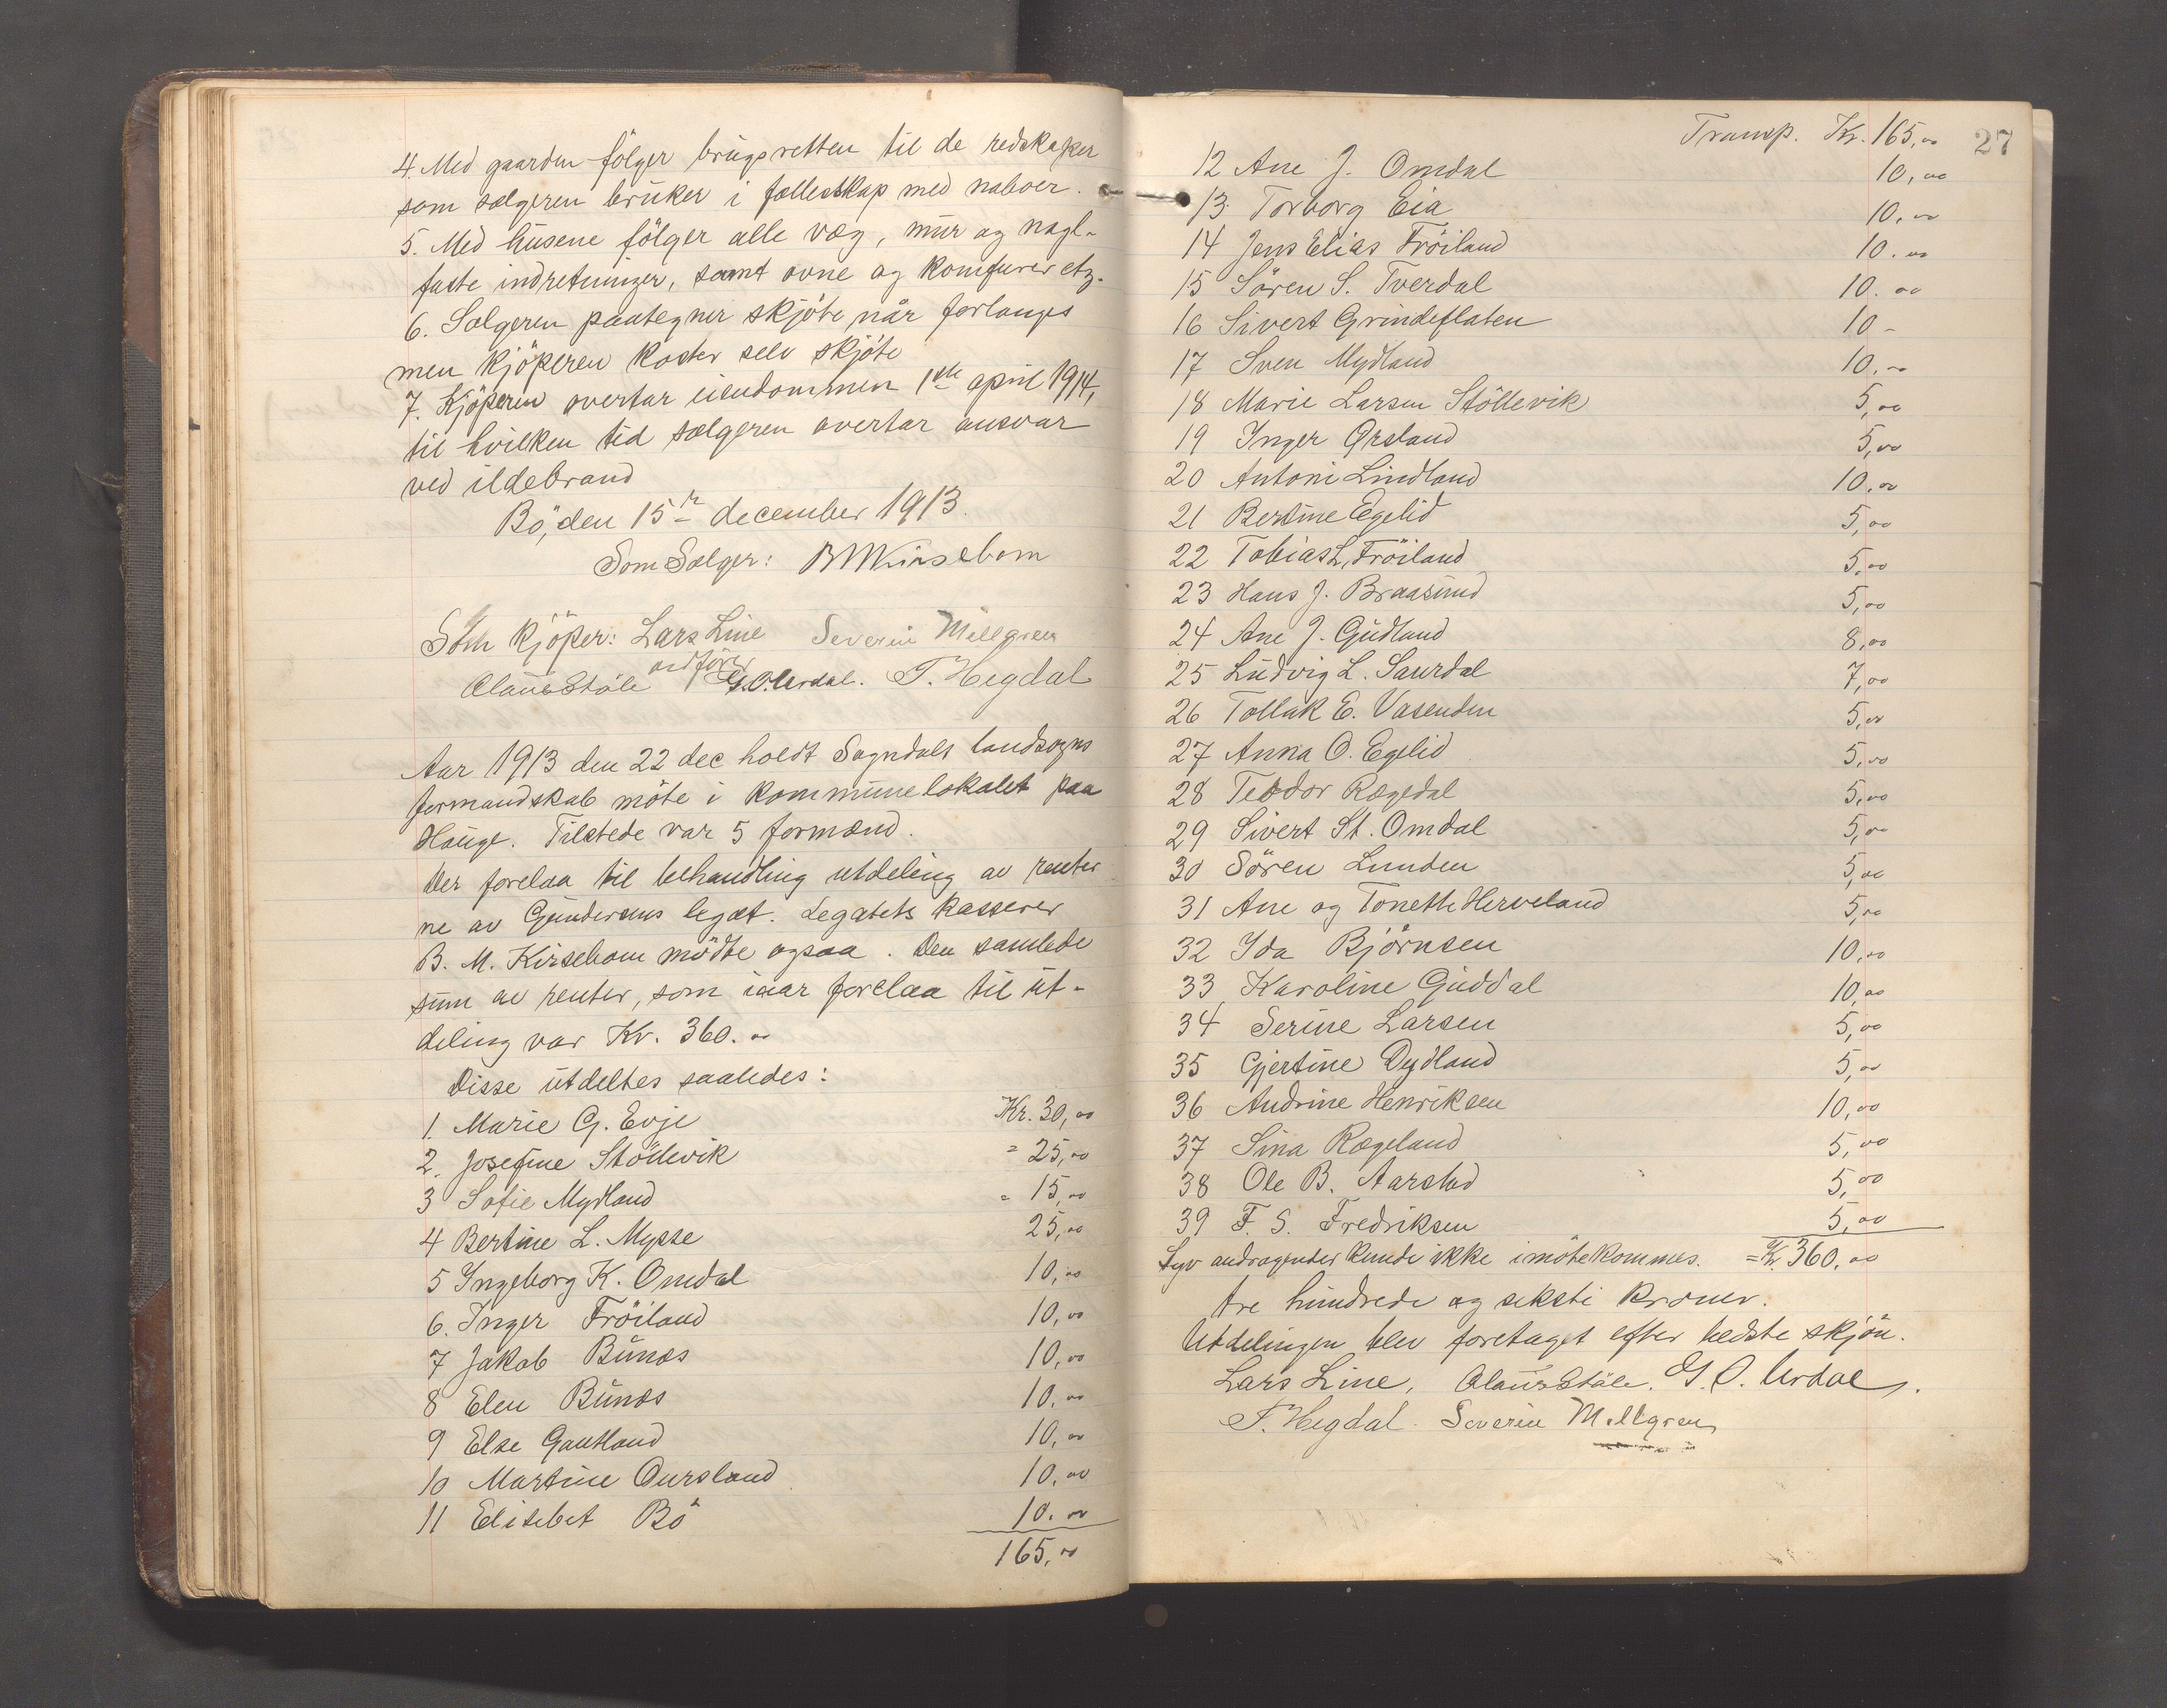 4. Med gaarden fölger brugsretten til de redskaper
som sælgeren bruker i fællesskap med naboer.
5. Med husene fölger alle væg, mur og nagl-
faste indretninger, samt ovne og komfurer etz.
6. Sælgeren paategner skjöte når forlanges
men kjöperen koster selv skjöte
7. Kjöperen overtar eiendommen 1ste april 1914,
til hvilken tid sælgeren overtar ansvar
ved ildebrand
Bö, den 15de december 1913.
Som Sælger: B M Kirsebom
Som kjöper: Lars Line Severin Mellgren
ordförer
Claus Ståle G. O. Urdal. T. Hegdal
Aar 1913 den 22 dec holdt Sogndals landsogns
formandskab möte i kommunelokalet paa
Hauge. Tilstede var 5 formænd.
Der forelaa til behandling utdeling av renter
ne av Gundersens legat. Legatets kasserer
B. M. Kirsebom mödte ogsaa. Den samlede
sum av renter, som iaar forelaa til ut-
deling var Kr. 360.00
Disse utdeltes saaledes:
1. Marie G. Evje Kr. 30,00
2. Josefine Stöllevik " 25,00
3 Sofie Mydland " 15,00
4 Bertine L. Mysse 25,00
5 Ingeborg K. Omdal 10,00
6. Inger Fröiland 10,00
7 Jakob Bunæs 10,00
8 Elen Bunæs 10.00
9 Else Gautland 10,00
10 Martine Oursland 10,00
11 Elisebet Bö 10.00
165,00
Transp. Kr. 165,00 27
12 Ane J. Omdal 10,00
13. Torborg Eia 10,00
14 Jens Elias Fröiland 10.00
15 Sören S. Tverdal 10.00
16 Sivert Grindeflaten 10 -
17 Sven Mydland 10.00
18 Marie Larsen Stöllevik 5,00
19 Inger Ørsland 5,00
20 Antoni Lindland 10.00
21 Bertine Egelid 5,00
22 Tobias L. Fröiland 5,00
23 Hans J. Braasund 5,00
24 Ane J. Gudland 8,00
25 Ludvig L. Saurdal 7,00
26 Tollak E. Vasenden 5,00
27 Anna O. Egelid 5,00
28 Teodor Rægedal 5,00
29 Sivert St. Omdal 5,00
30 Sören Lunden 5,00
31 Ane og Tonette Herveland 5,00
32 Ida Björnsen 10,00
33 Karoline Guddal 10,00
34 Serine Larsen 5,00
35 Gjertine Dydland 5,00
36 Andrine Henriksen 10,00
37 Sina Rægeland 5,00
38 Ole B. Aarstad 5,00
39 F. S. Fredriksen 5,00
Syv andragender kunde ikke imötekommes. = Kr. 360.00
tre hundrede og seksti kroner.
Utdelingen blev foretaget efter bedste skjön.
Lars Line, Claus Ståle. G. O. Urdal.
T. Hegdal. Severin Mellgren